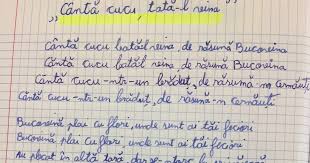 ,, Cântă cucu, tată-l reina "
Cântă cucu batăl reina, de răsună Bucovina
Cântă cucu batăl reina, de răsună Bucovina
Cântă cucu-ntr-un brăduț, de răsună-n Cernăuți
Cântă cucu-ntr-un brăduț, de răsună-n Cernăuți
Bucovină, plai cu flori, unde sunt ai tăi feciori
Bucovină, plai cu flori, unde sunt ai tăi feciori
Au plecat în altă țară dar se-ntorc